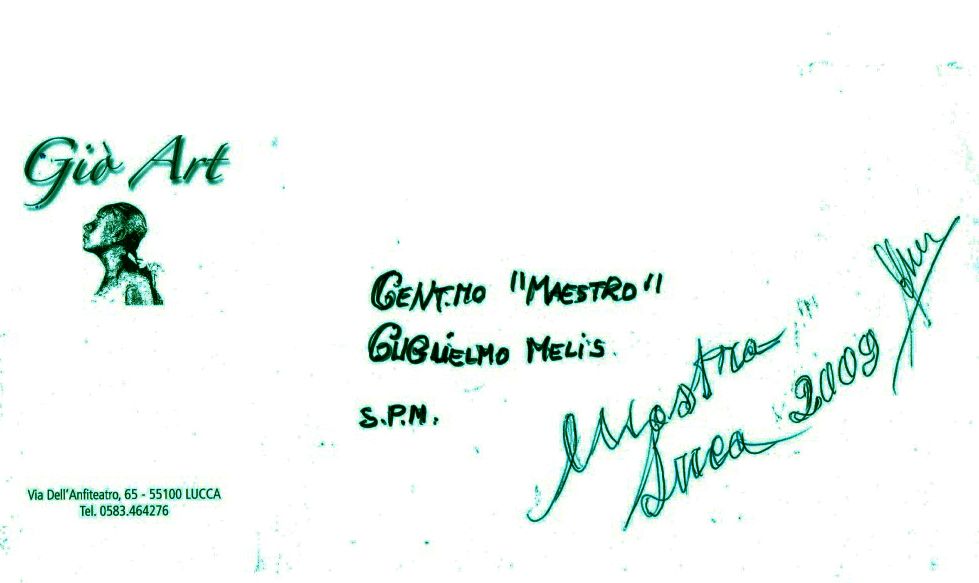 Giò Art
GENT.MO "MAESTRO"
GUGLIELMO MELIS
S.P.M.
Mostra
Lucca 2009
Via Dell'Anfiteatro, 65 - 55100 LUCCA
Tel. 0583.464276